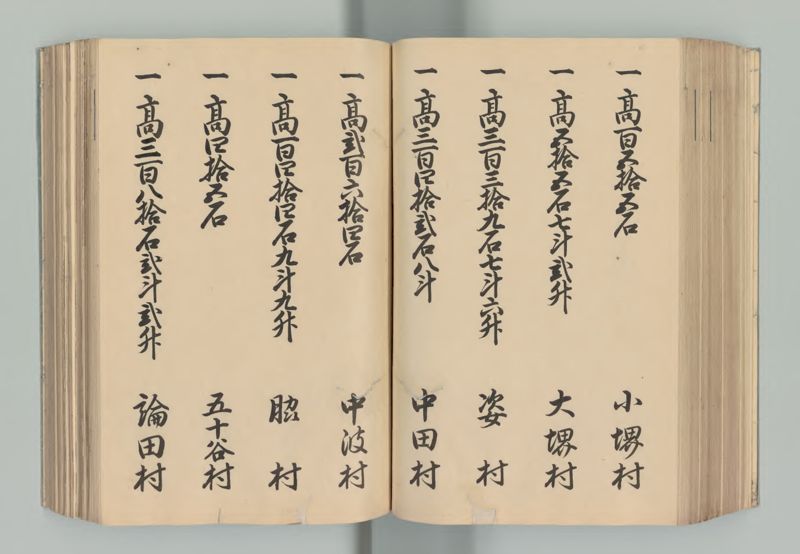 一 高百五拾五石 小堺村
一 高五拾五石七斗弐升 大堺村
一 高三百三拾九石七斗六升 姿 村
一 高三百四拾弐石八斗 中田村
一 高弐百六拾四石 中波村
一 高百四拾四石九斗九升 脇 村
一 高四拾五石 五十谷村
一 高三百八拾石弐斗弐升 論田村